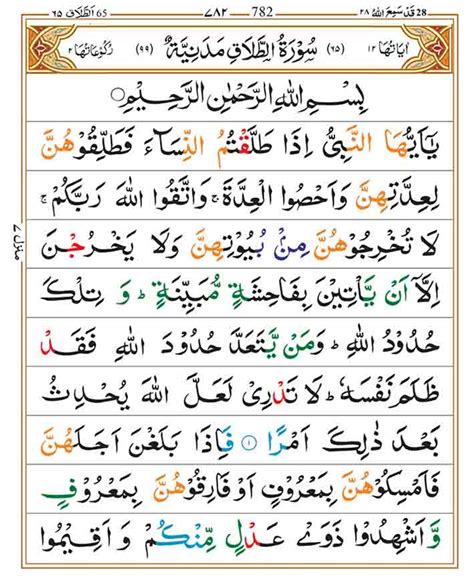 28 قَدْ سَمِعَ اللهُ ٢٨
782 ٧٨٢
اَلطَّلَاق 65 ٦٥
اٰيَاتُهَا ١٢ (٦٥) سُوْرَةُ الطَّلَاقِ مَدَنِيَّةٌ (٩٩) رُكُوْعَاتُهَا ٢
بِسْمِ اللهِ الرَّحْمٰنِ الرَّحِيْمِ
يٰۤاَيُّهَا النَّبِىُّ اِذَا طَلَّقْتُمُ النِّسَآءَ فَطَلِّقُوْهُنَّ
لِعِدَّتِهِنَّ وَاَحْصُوا الْعِدَّةَ ۚ وَاتَّقُوا اللهَ رَبَّكُمْ ۚ
لَا تُخْرِجُوْهُنَّ مِنْۢ بُيُوْتِهِنَّ وَلَا يَخْرُجْنَ
اِلَّاۤ اَنْ يَّاْتِيْنَ بِفَاحِشَةٍ مُّبَيِّنَةٍ ؕ وَ تِلْكَ
حُدُوْدُ اللهِ ؕ وَمَنْ يَّتَعَدَّ حُدُوْدَ اللهِ فَقَدْ
ظَلَمَ نَفْسَهٗ ؕ لَا تَدْرِىْ لَعَلَّ اللهَ يُحْدِثُ
بَعْدَ ذٰلِكَ اَمْرًا ۱ فَاِذَا بَلَغْنَ اَجَلَهُنَّ
فَاَمْسِكُوْهُنَّ بِمَعْرُوْفٍ اَوْ فَارِقُوْهُنَّ بِمَعْرُوْفٍ
وَّ اَشْهِدُوْا ذَوَىْ عَدْلٍ مِّنْكُمْ وَ اَقِيْمُوا
منزل ٧